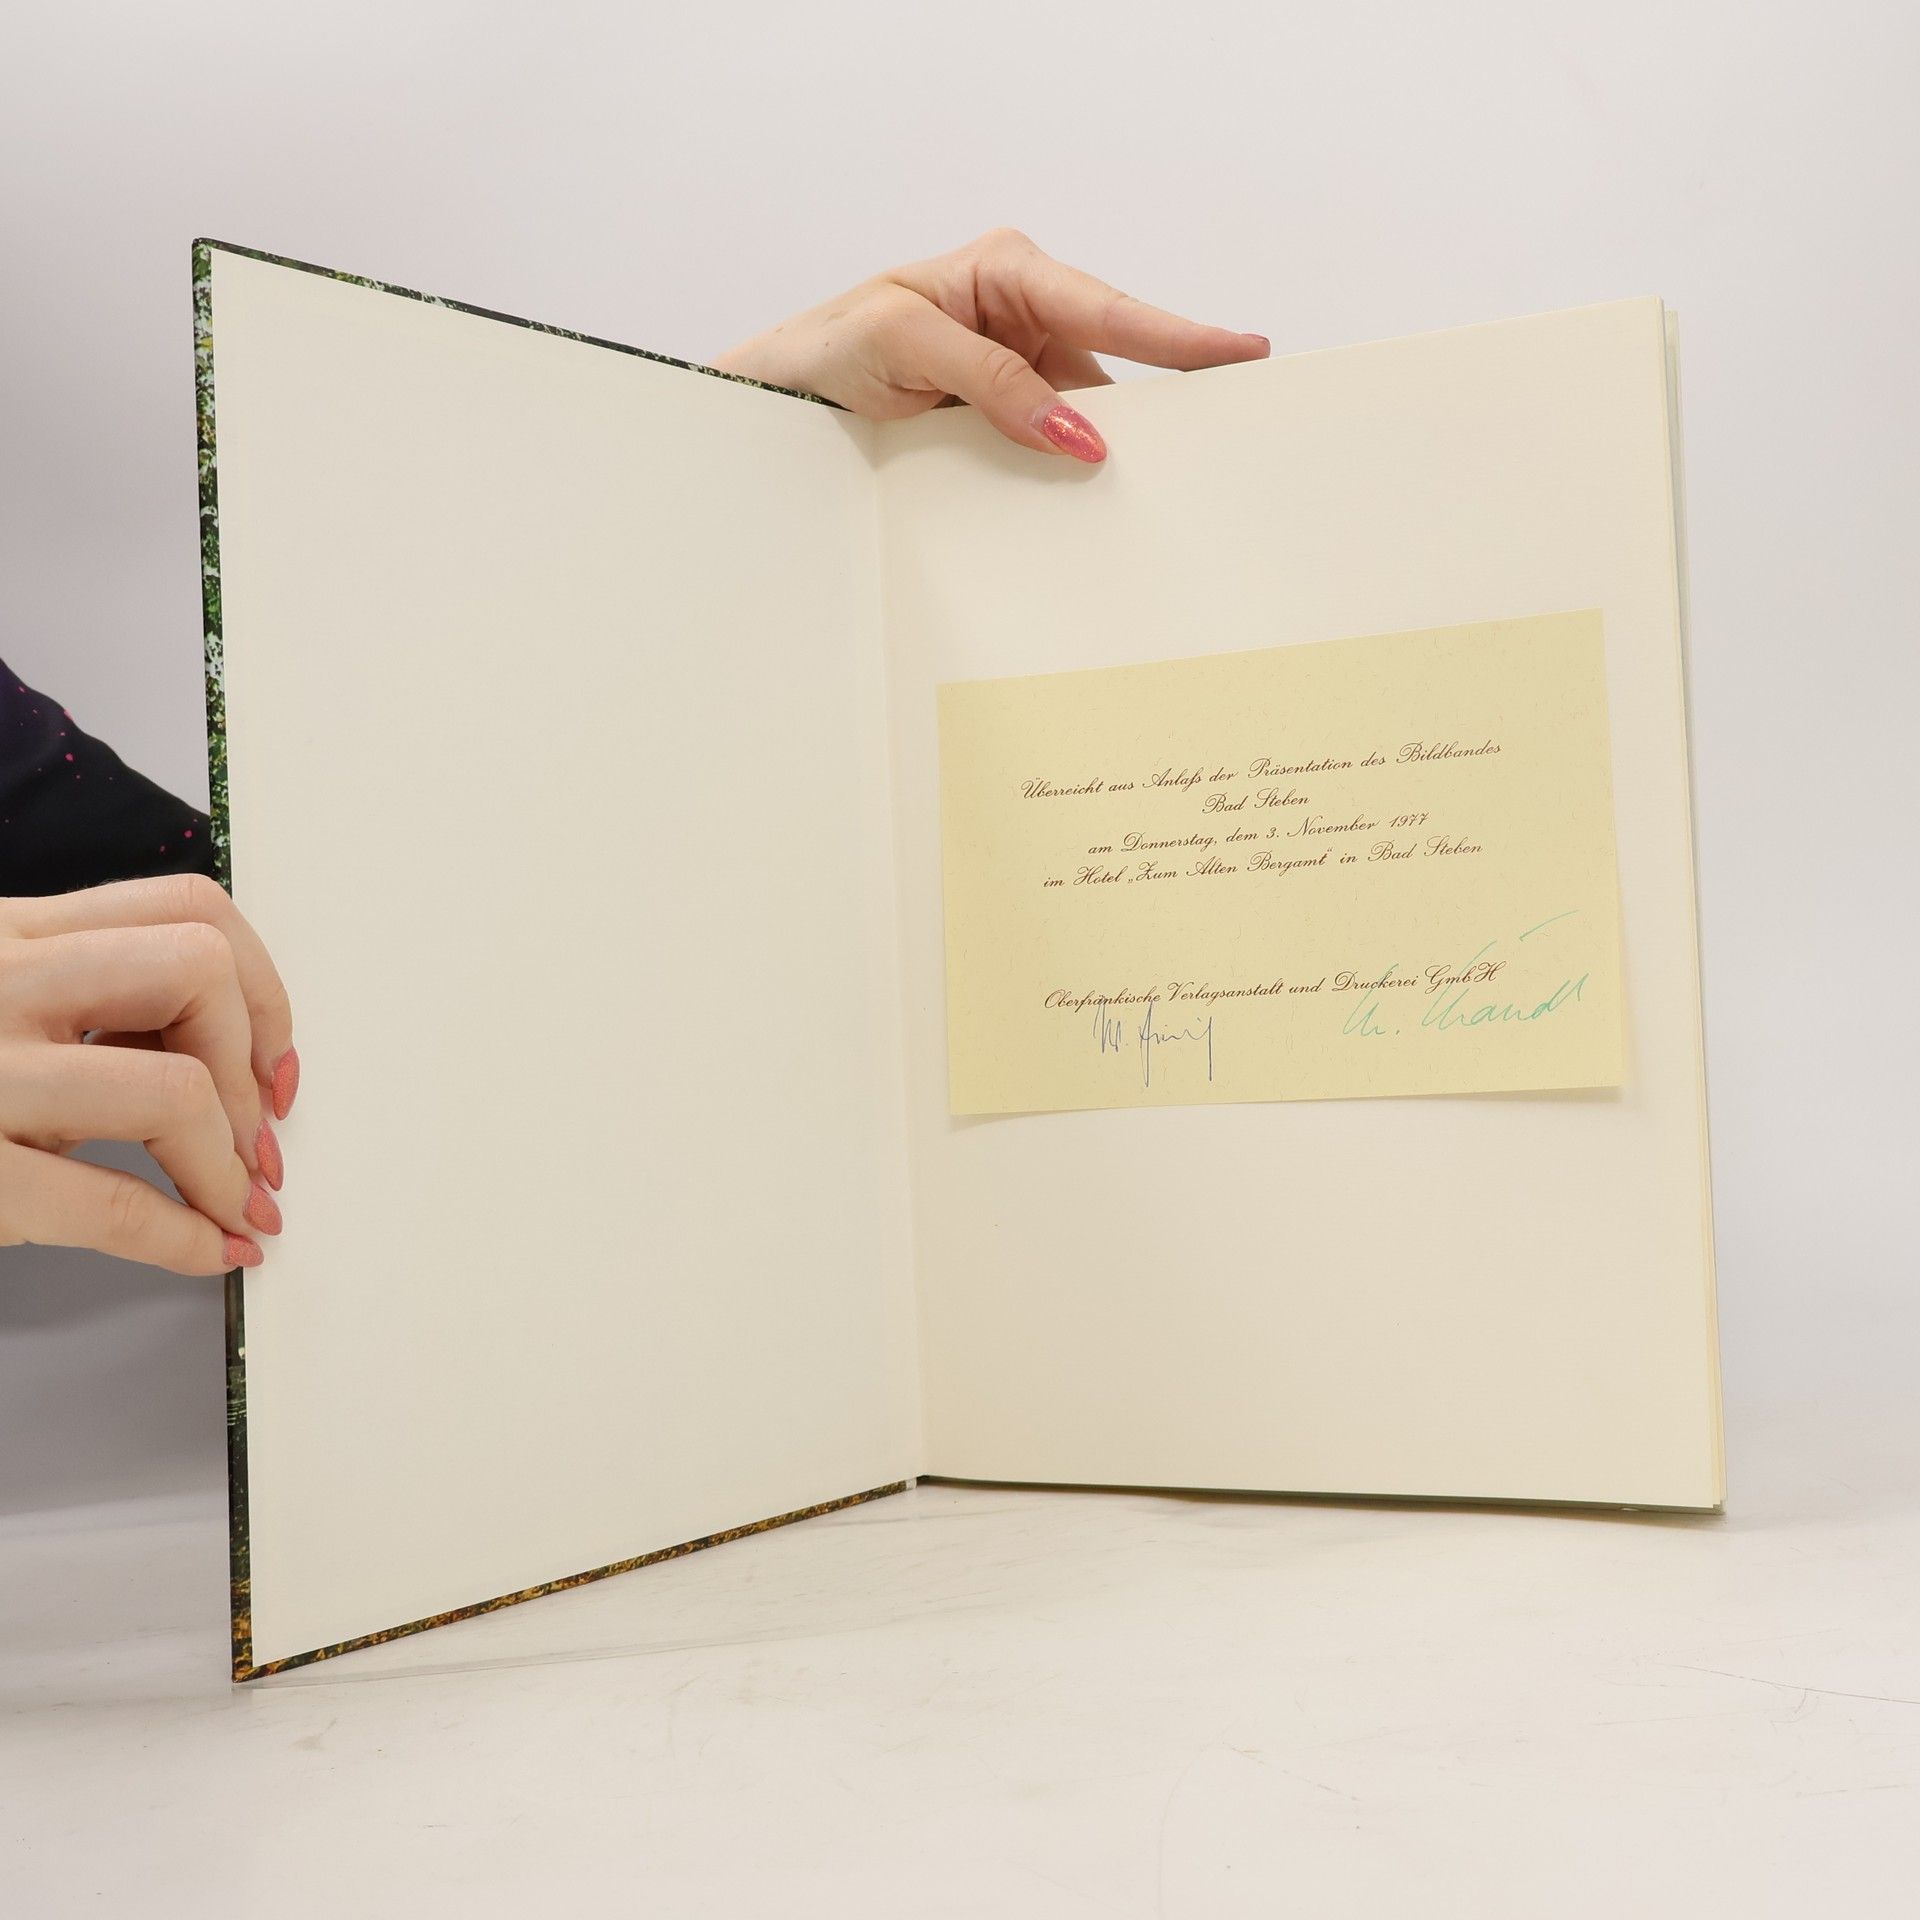 Überreicht aus Anlaß der Präsentation des Bildbandes
Bad Steben
am Donnerstag, dem 3. November 1977
im Hotel „Zum Alten Bergamt" in Bad Steben
Oberfränkische Verlagsanstalt und Druckerei GmbH